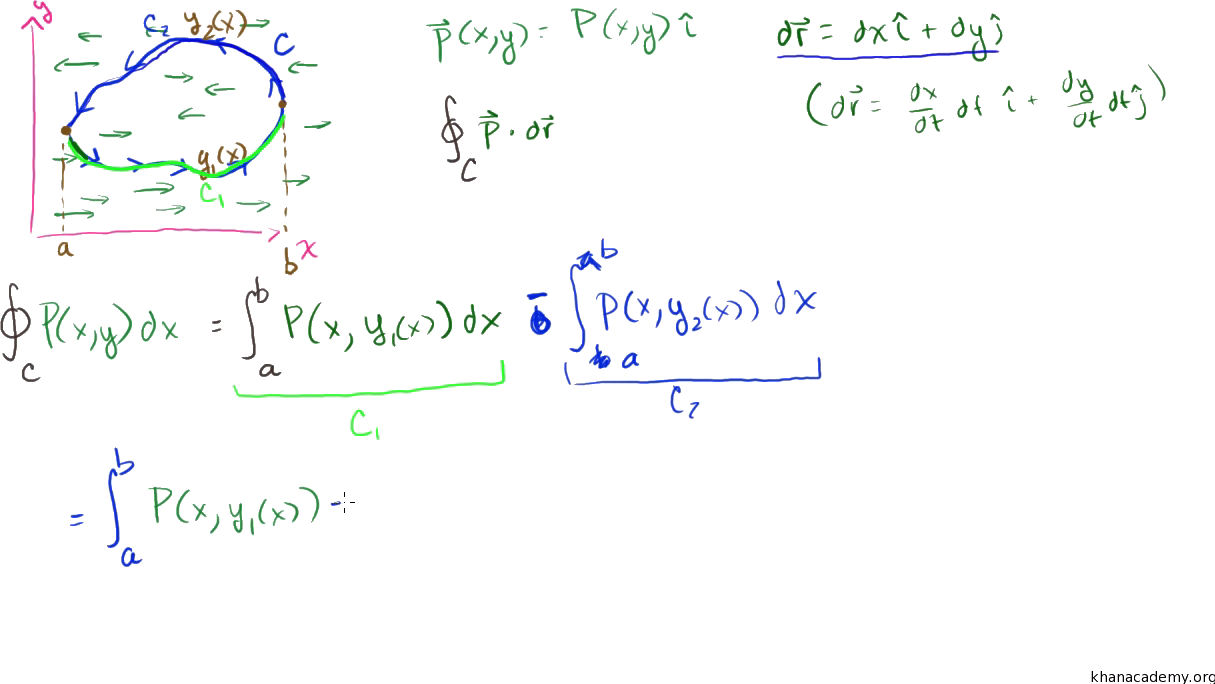 y
C₂ y₂(x) C
y₁(x)
C₁
a b x
P⃗(x,y) = P(x,y) î
dr⃗ = dx î + dy ĵ
(dr⃗ = dx/dt dt î + dy/dt dt ĵ)
∮_C P⃗ · dr⃗
∮_C P(x,y) dx = ∫_a^b P(x, y₁(x)) dx - ∫_a^b P(x, y₂(x)) dx
C₁ C₂
= ∫_a^b P(x, y₁(x)) -
khanacademy.org